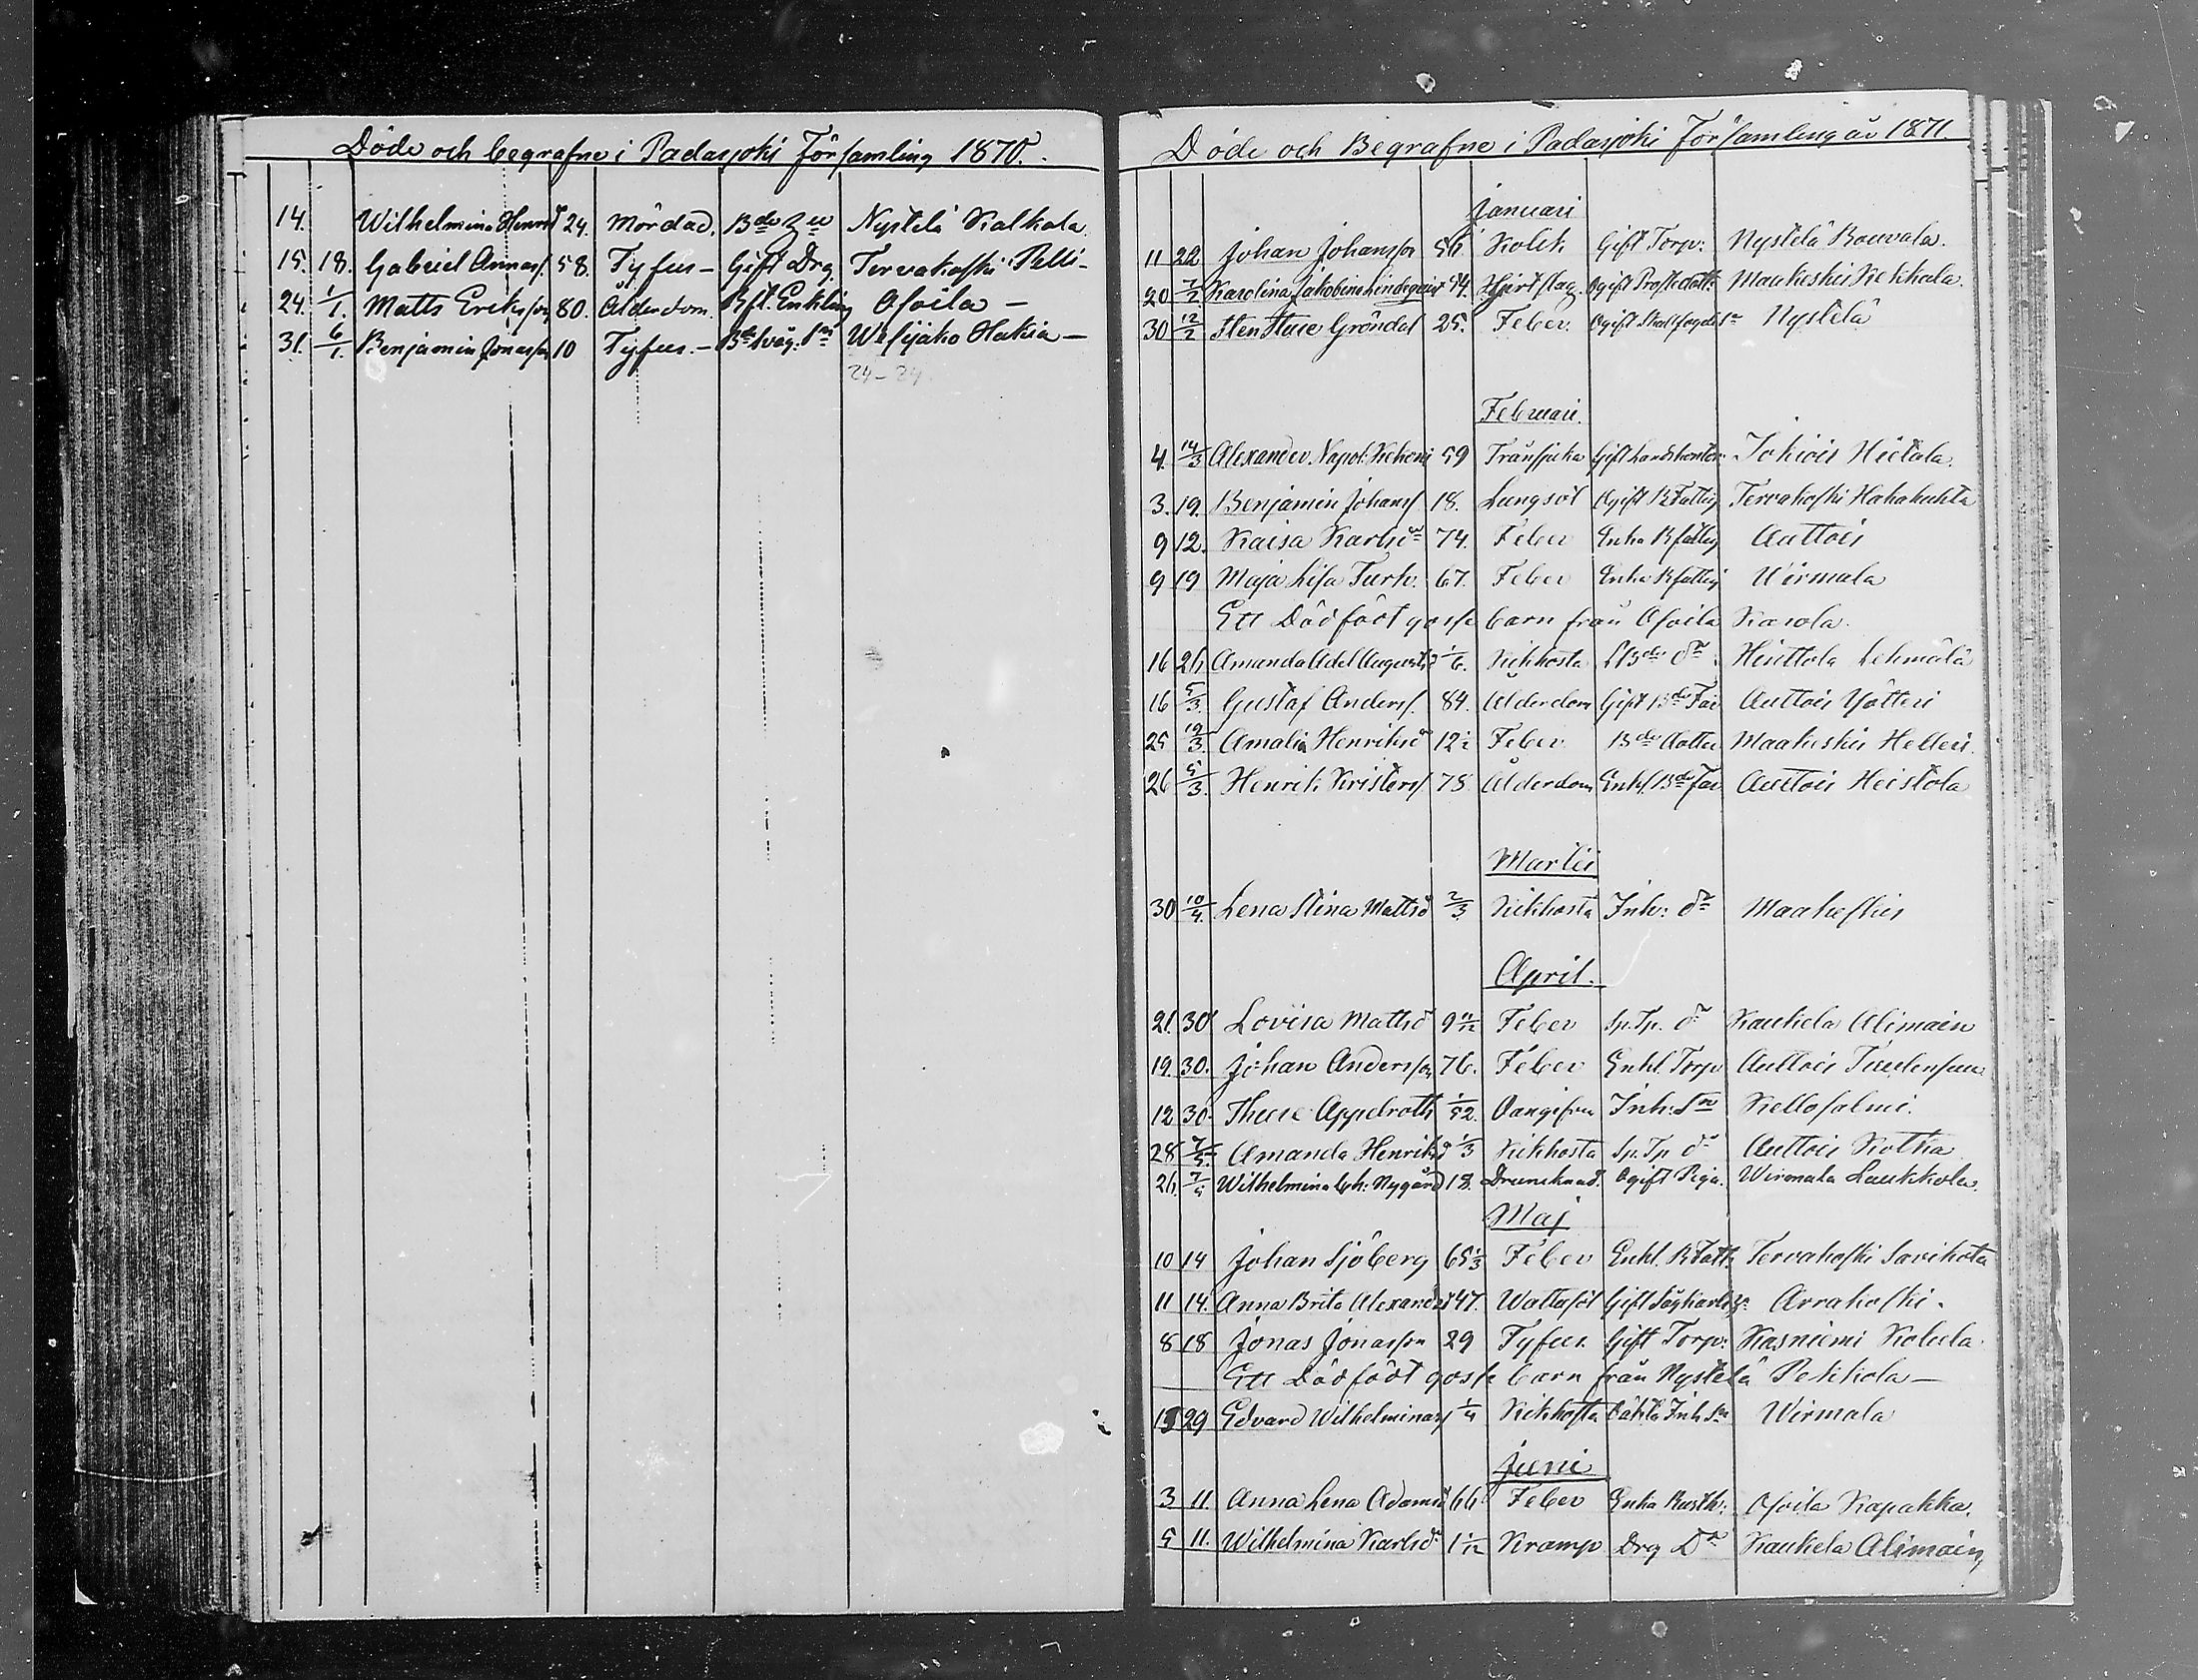 Döde och begrafne i Padasjoki Församling 1870.
14. Wilhelmina Henrd 24. Mördad. Bde Nystelä Kalkala
15. 18. Gabriel Annass. 58. Tyfus - Gift Drg. Tervakoski Pelli-
24. 1/1. Matts Eriksson 80. Ålderdom. Rft. Enkling Osoila -
31. 6/1. Benjamin Jonasson 10 Tyfus. - Wesijako Hakia -
24-24.
Döde och Begrafne i Padasjoki Församling år 1871.
Januari
11 22. Johan Johansson 56. Kolik Gift Torp: Nystelä Rouvala.
20 Karolina Jakobina Lindqvist 54. Hjertslag. Ogift Maakeskis Kekkala.
30 12/2 Sten Sture Gröndal 25. Feber. Ogift Nystelä
Februari.
4. 14/3 Alexander Napol. 59 Gift Landskontor. Jokiois Hietala.
3. 19. Benjamin Johanss 18. Lungsot Ogift R Fattig Tervakoski Hakakuhta
9 12. Kaisa Karlsdr 74. Feber Enka Rfattig Auttois
9 19 Maja Lisa Turk. 67. Feber Enka Rfattig Wirmala
Ett Dödfödt gosse barn från Osoila Karola.
16 26 Amanda Adel Augustd 1/6. Kikhosta dr Hinttola Lehmälä
16 5/3. Gustaf Anderss. 84. Ålderdom Gift Bde Far Auttois Yötteri
25 19/3. Amalia Henriksd 12½ Feber Bde dotter Maakeskis Helleri.
26 5/3. Henrik Kristerss 75. Ålderdom Enkl. Bde far Auttois Heistola
Martii
30 10/4. Lena Stina Mattsd 2/3 Kikhosta Inh: dr Maakeskis
April.
21. 30 Lovisa Mattsd 9 11/12 Feber Sp. Tp. dr Kaukela Alimain
19. 30. Johan Andersson 76. Feber Enkl. Torp Auttois Tuulensuu
12 30. Thure Appelroth 1/52. Oangifven Inh: Sn Kellosalmi.
28 7/5. Amanda Henriksd 1/3 Kikhosta Sp. Tp dr Auttois Kotka
26. 7/5 Wilhelmina Nygård 18. Drunknad. Ogift Piga. Wirmala Laukkola.
Maj
10 14 Johan Sjöberg 65 1/3 Feber Enkl. R Fatt: Tervakoski Savikota
11 14. Anna Brita Alexandd 47. Wattusot Gift Arrakoski.
8 18 Jonas Jonasson 29 Tyfus. Gift Torp: Kasniemi Kokela.
Ett Dödfödt gosse barn från Nystelä Pekkola -
15 29 Edvard Wilhelminass 1/4 Kikhosta Oäkta Inh. Sn Wirmala
Juni
3 11. Anna Lena Adamsd 66 Feber Enka Rusth: Osoila Kapakka.
5 11. Wilhelmina Karlsdr 1 1/12 Kramp Drg Dr Kaukela Alimain